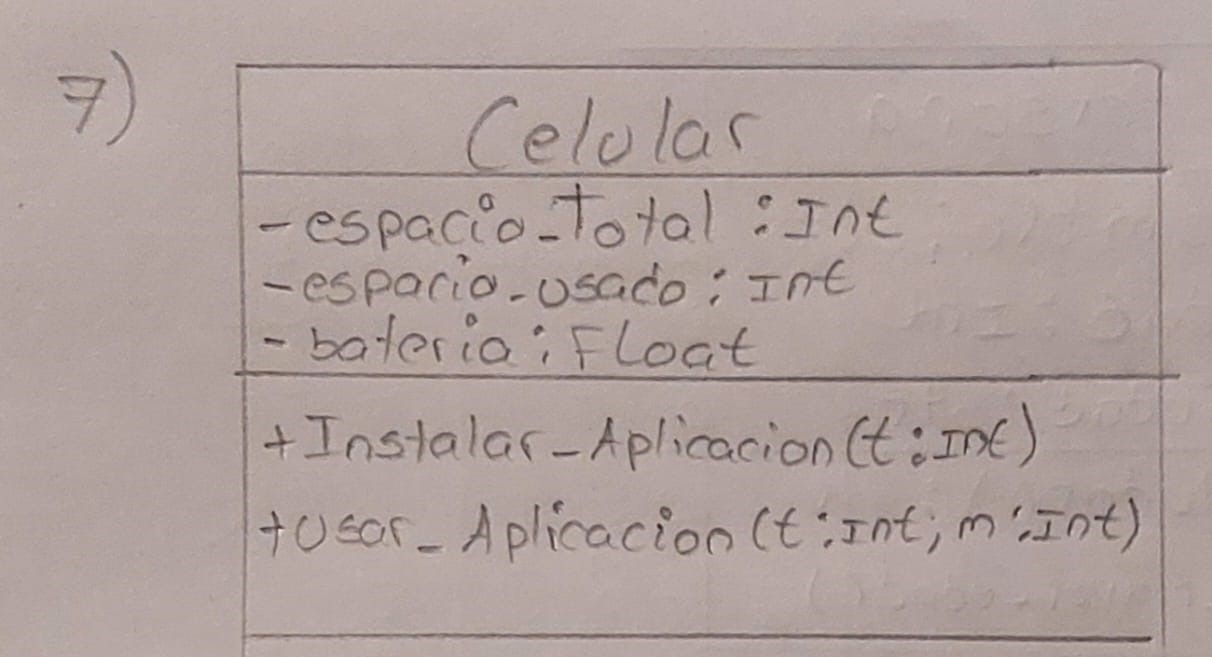 7)
Celular
-espacio_Total : Int
-espacio_usado : Int
- bateria : Float
+Instalar_Aplicacion(t:Int)
+Usar_Aplicacion(t:Int; m:Int)